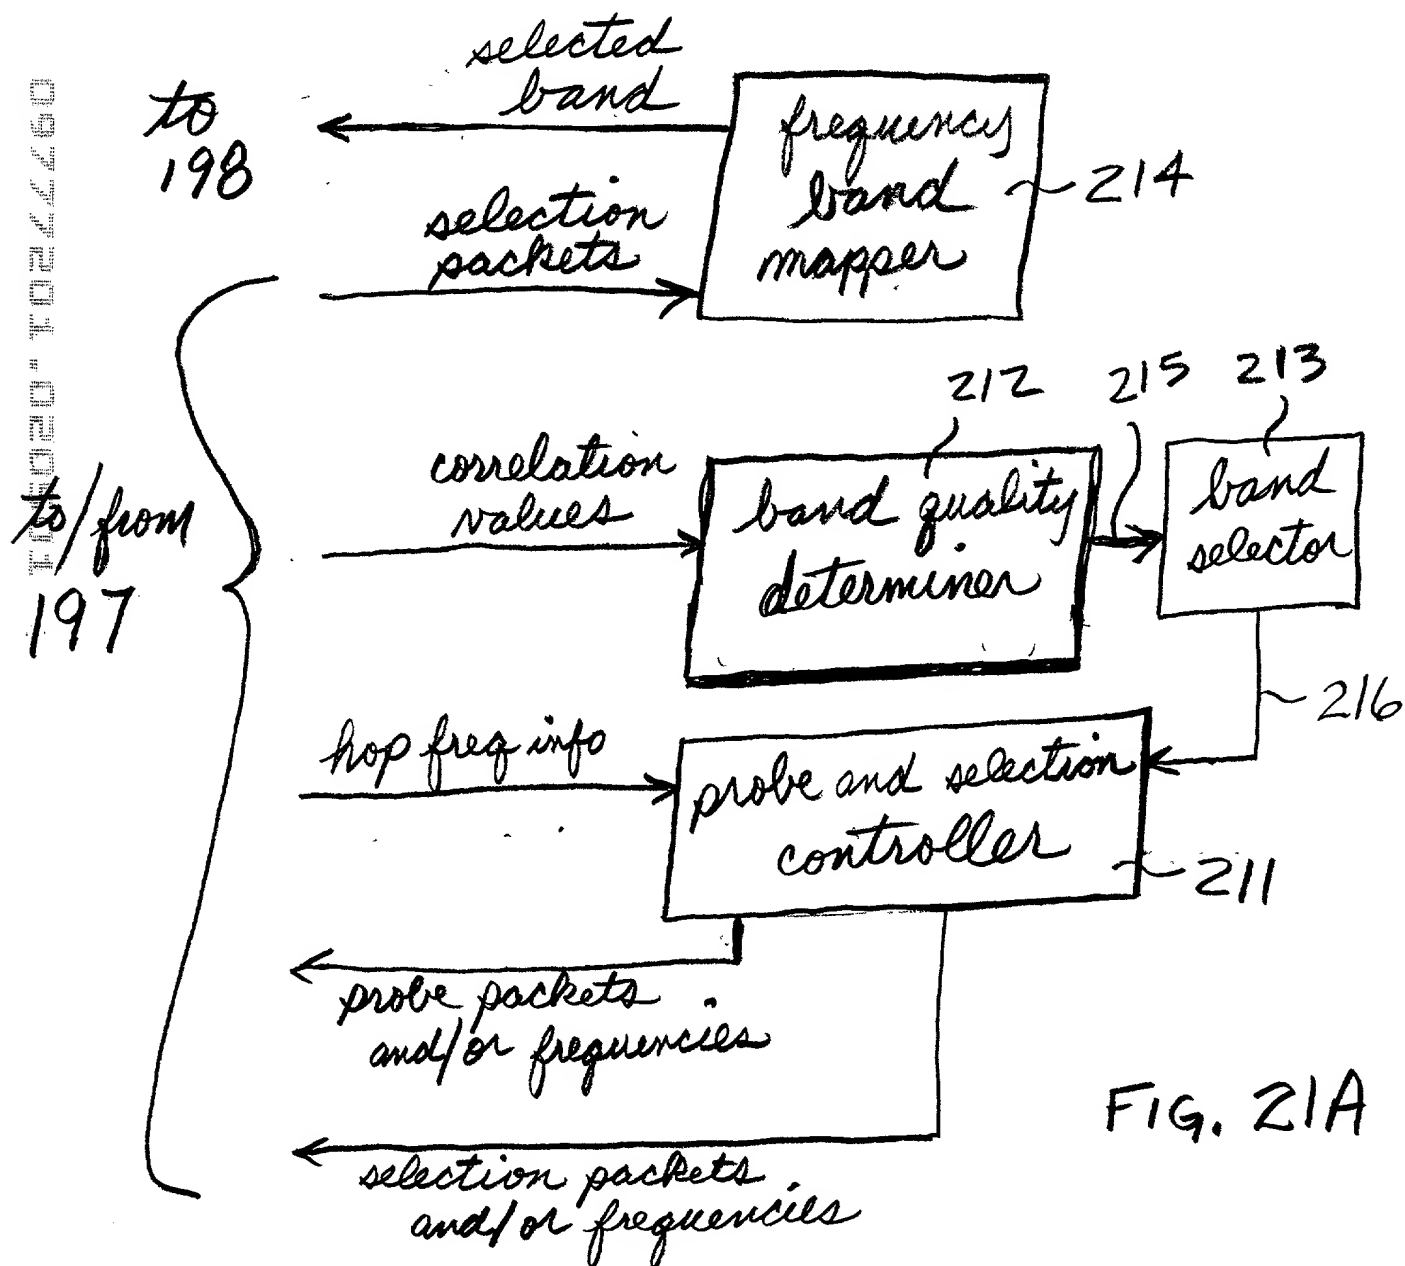 selected
band
to
198
frequency
band
mapper
214
selection
packets
212
215
213
correlation
values
band quality
determiner
band
selector
to/from
197
216
hop freq info
probe and selection
controller
211
probe packets
and/or frequencies
selection packets
and/or frequencies
FIG. 21A